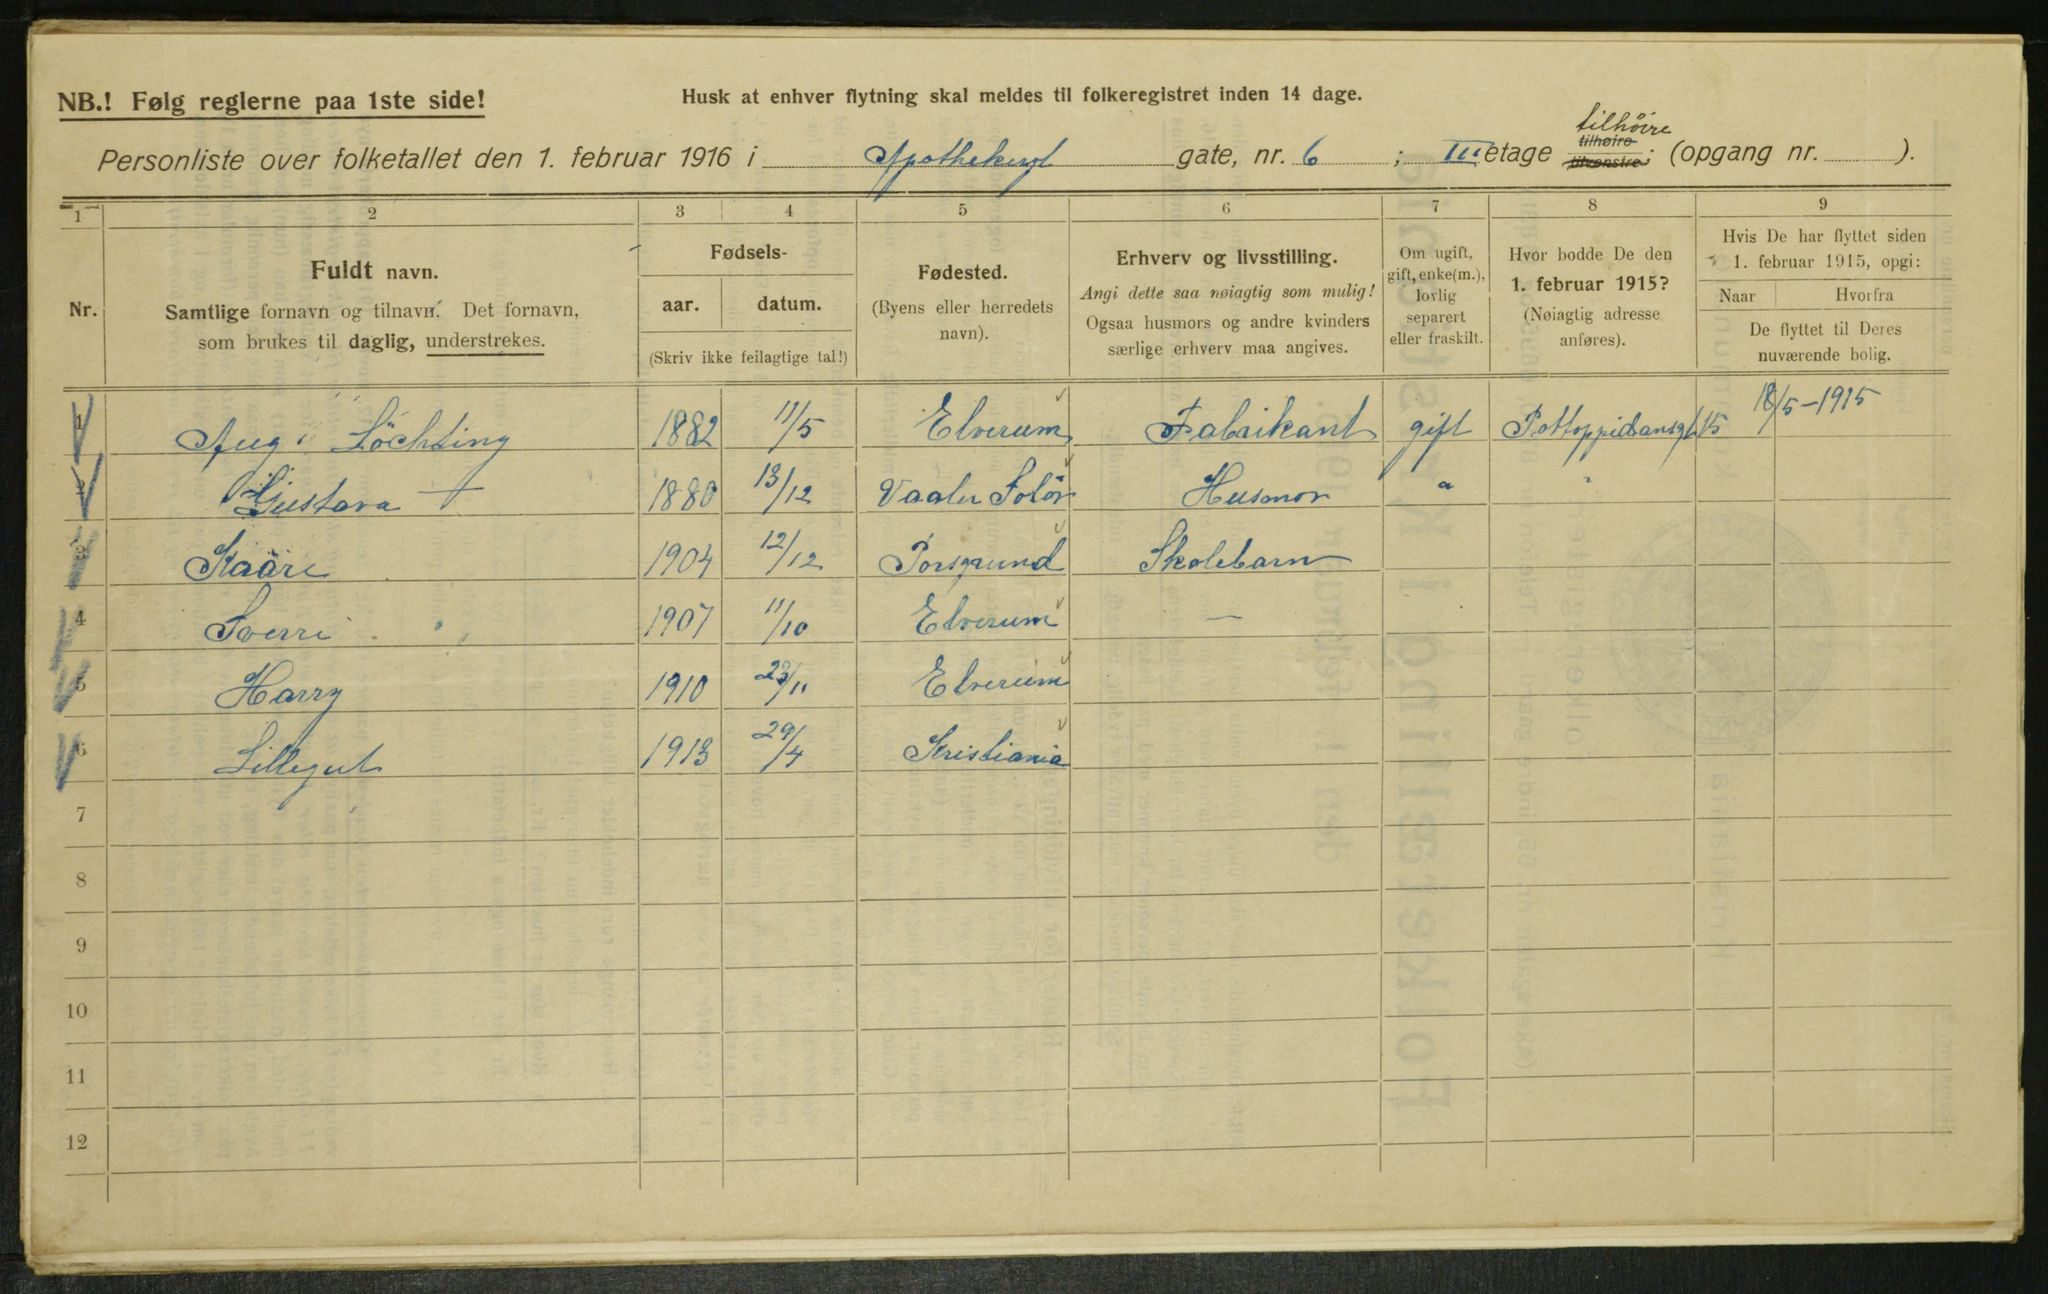 NB.! Følg reglerne paa 1ste side!
Husk at enhver flytning skal meldes til folkeregistret inden 14 dage.
tilhöire
Personliste over folketallet den 1. februar 1916 i Apothekergt gate, nr. 6 ; III etage tilhøire tilvenstre; (opgang nr. ).
1 2 3 4 5 6 7 8 9
Nr.
Fuldt navn.
Samtlige fornavn og tilnavn. Det fornavn,
som brukes til daglig, understrekes.
Fødsels-
aar. datum.
(Skriv ikke feilagtige tal!)
Fødested.
(Byens eller herredets
navn).
Erhverv og livsstilling.
Angi dette saa nøiagtig som mulig!
Ogsaa husmors og andre kvinders
særlige erhverv maa angives.
Om ugift,
gift, enke(m.),
lovlig
separert
eller fraskilt.
Hvor bodde De den
1. februar 1915?
(Nøiagtig adresse
anføres).
Hvis De har flyttet siden
1. februar 1915, opgi:
Naar Hvorfra
De flyttet til Deres
nuværende bolig.
1 Aug. Löchting 1882 11/5 Elverum Fabrikant gift Pottoppidansgt 15 18/5-1915
2 Gustava 1880 13/12 Vaaler Solör Husmor " "
3 Kaare 1904 12/12 Porsgrund Skolebarn
4 Sverre " " 1907 11/10 Elverum —
5 Harry 1910 23/11 Elverum
6 Lillegut 1913 29/4 Kristiania
7
8
9
10
11
12